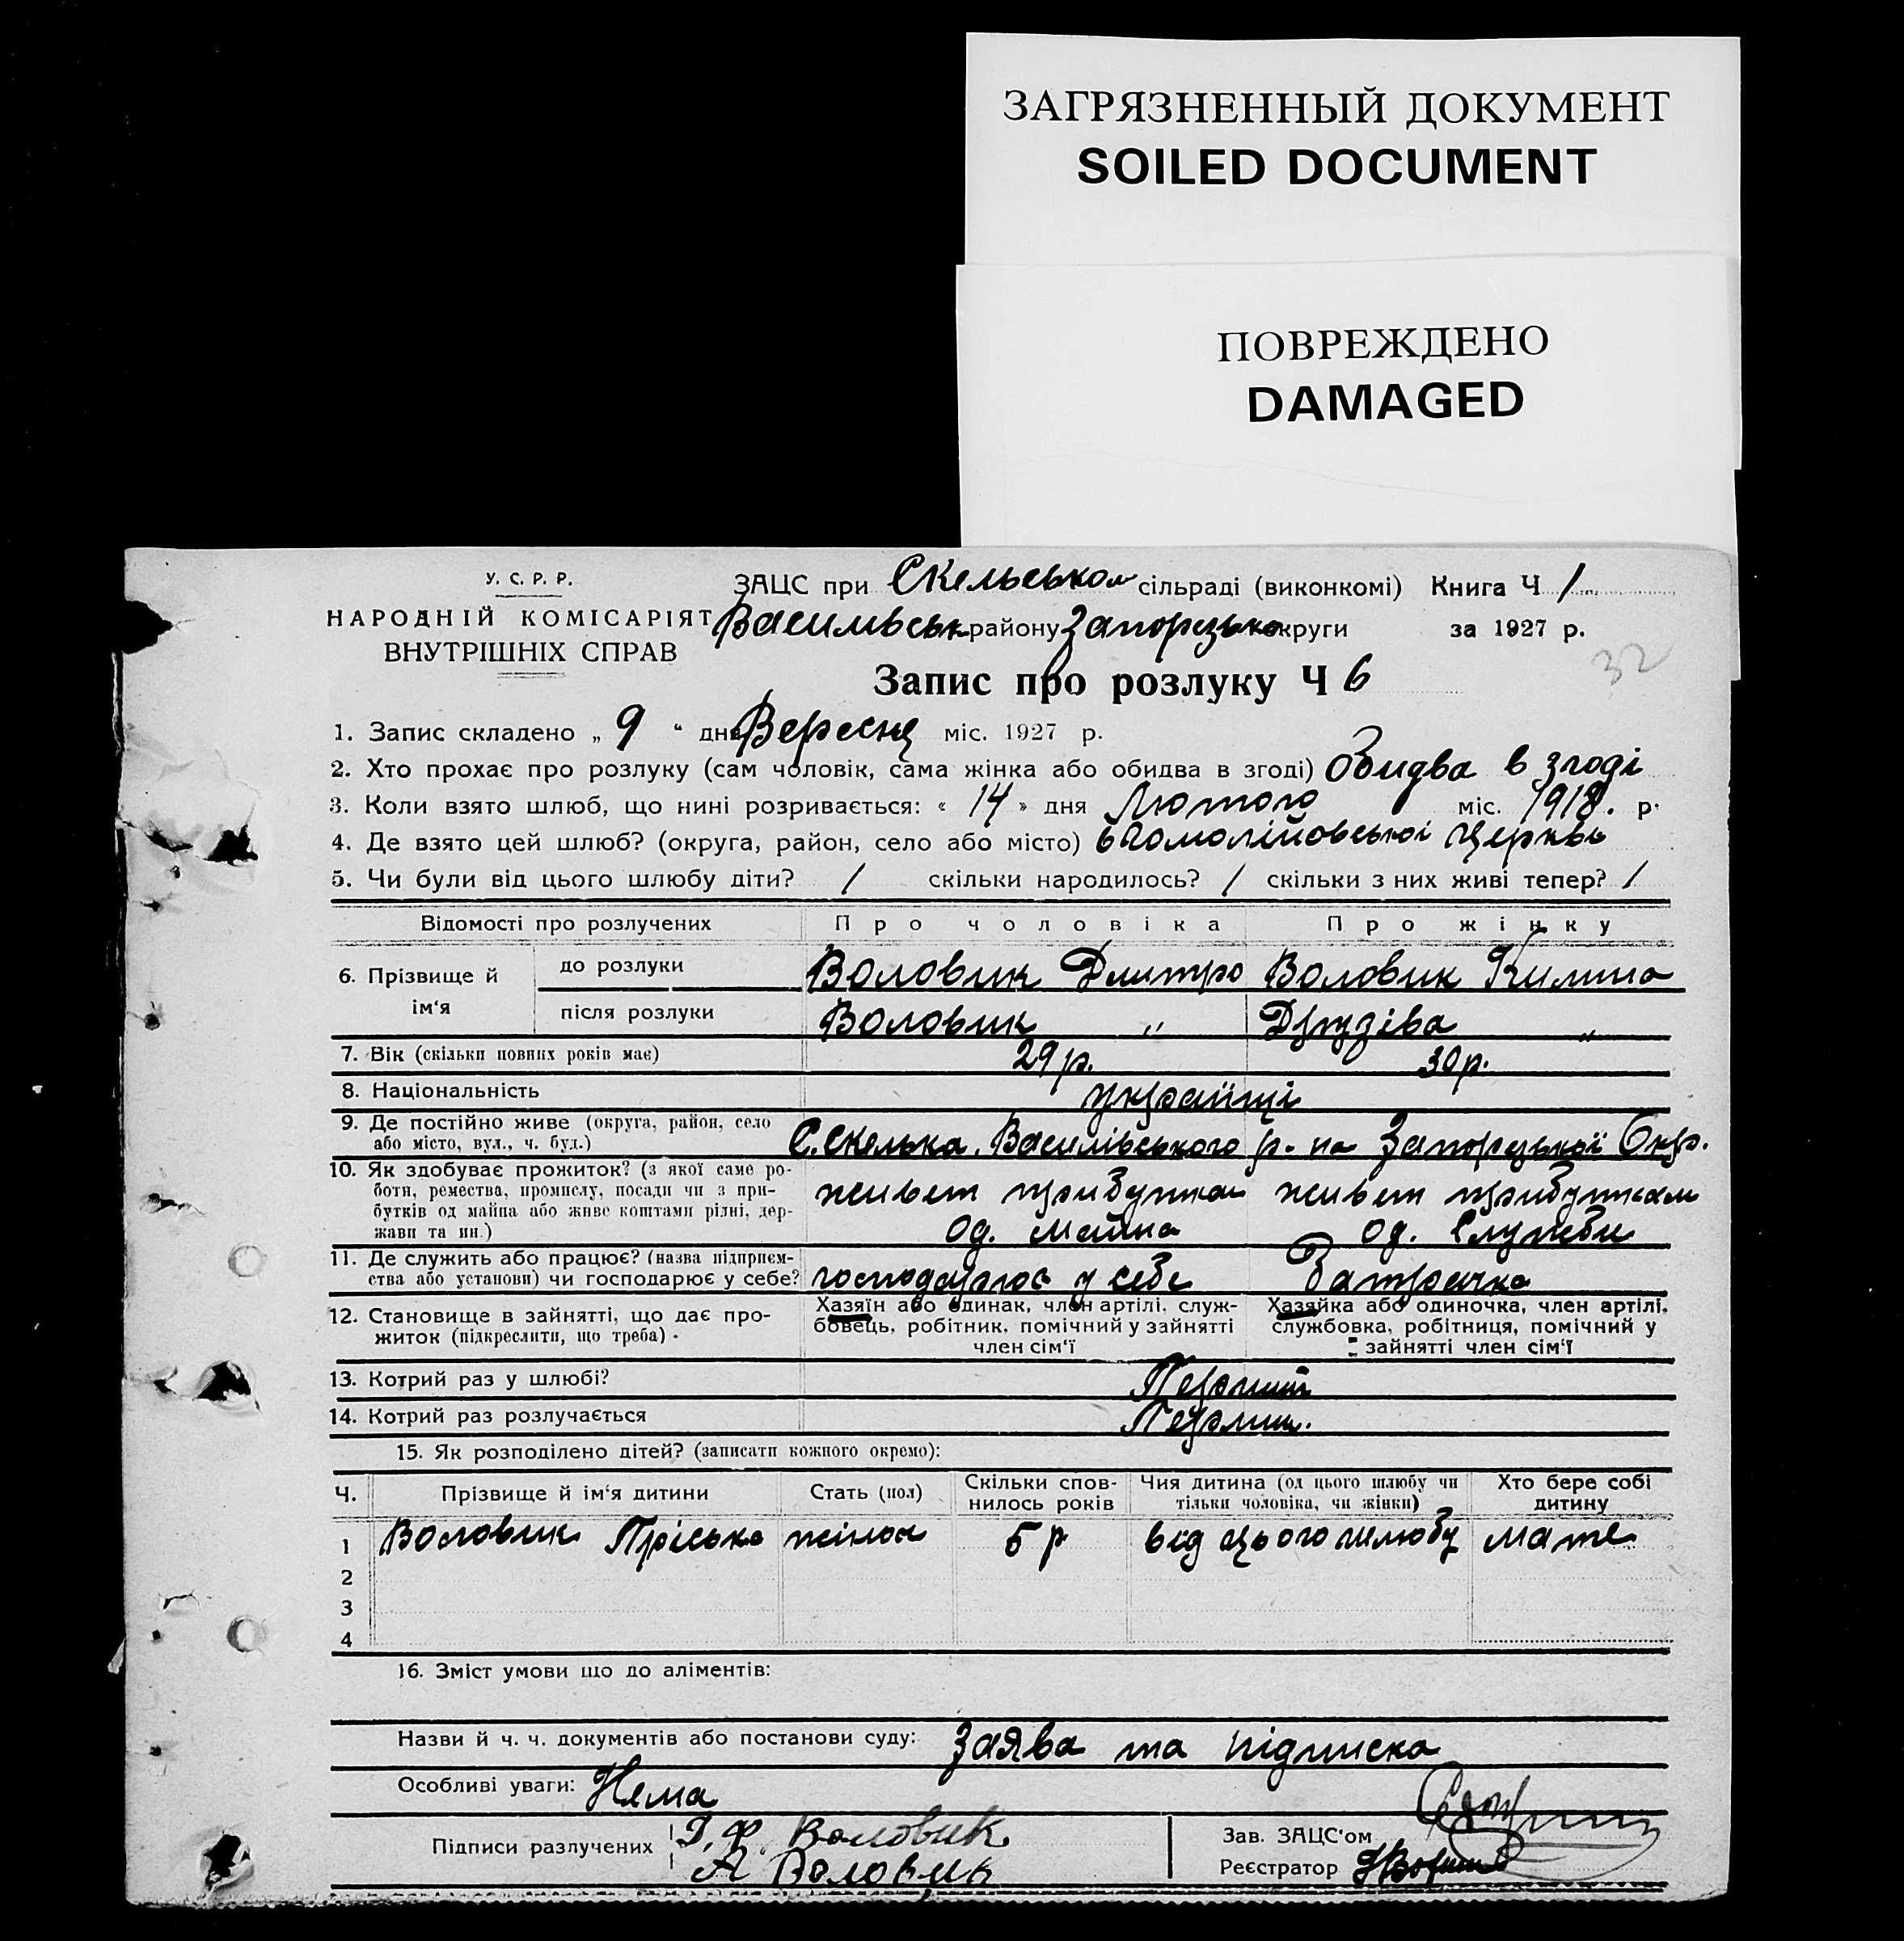 ЗАГРЯЗНЕННЫЙ ДОКУМЕНТ
SOILED DOCUMENT
ПОВРЕЖДЕНО
DAMAGED
У. С. Р. Р.
НАРОДНІЙ КОМІСАРІЯТ
ВНУТРІШНІХ СПРАВ
ЗАЦС при Скельськом сільраді (виконкомі) Книга Ч 1
Василівськ району Запорізько округи за 1927 р.
32
Запис про розлуку Ч 6
1. Запис складено „ 9 “ дня Вересня міс. 1927 р.
2. Хто прохає про розлуку (сам чоловік, сама жінка або обидва в згоді) Обидва в згоді
3. Коли взято шлюб, що нині розривається: « 14 » дня Лютого міс. 1918. р.
4. Де взято цей шлюб? (округа, район, село або місто) церкві
5. Чи були від цього шлюбу діти? / скільки народилось? / скільки з них живі тепер? /
Відомості про розлучених Про чоловіка Про жінку
6. Прізвище й ім'я до розлуки Воловик Дмитро Воловик Килина
після розлуки Воловик " Друзіва "
7. Вік (скільки повних років має) 29 р. 30 р.
8. Національність українці
9. Де постійно живе (округа, район, село
або місто, вул., ч. буд.) С. Скелька. Василівського р-на Запорізької Окр.
10. Як здобуває прожиток? (з якої саме ро-
боти, ремества, промислу, посади чи з при-
бутків од майна або живе коштами рідні, дер-
жави та ин.)
живет прибутком
од. майна
живет прибутками
од. Служби
11. Де служить або працює? (назва підприєм-
ства або установи) чи господарює у себе?
господарює у себе Батрачка
12. Становище в зайнятті, що дає про-
житок (підкреслити, що треба)
Хазяїн або одинак, член артілі, служ-
бовець, робітник, помічний у зайнятті
член сім'ї
Хазяйка або одиночка, член артілі,
службовка, робітниця, помічний у
зайнятті член сім'ї
13. Котрий раз у шлюбі? Перший
14. Котрий раз розлучається Перший.
15. Як розподілено дітей? (записати кожного окремо):
Ч. Прізвище й ім'я дитини Стать (пол) Скільки спов-
нилось років Чия дитина (од цього шлюбу чи
тільки чоловіка, чи жінки) Хто бере собі
дитину
1 Воловик Пріська жіноч 5 р від цього шлюбу мати
2
3
4
16. Зміст умови що до аліментів:
Назви й ч. ч. документів або постанови суду: Заява та підписка
Особливі уваги: Нема
Підписи разлучених Д. Ф. Воловик
А Воловик
Зав. ЗАЦС'ом
Реєстратор